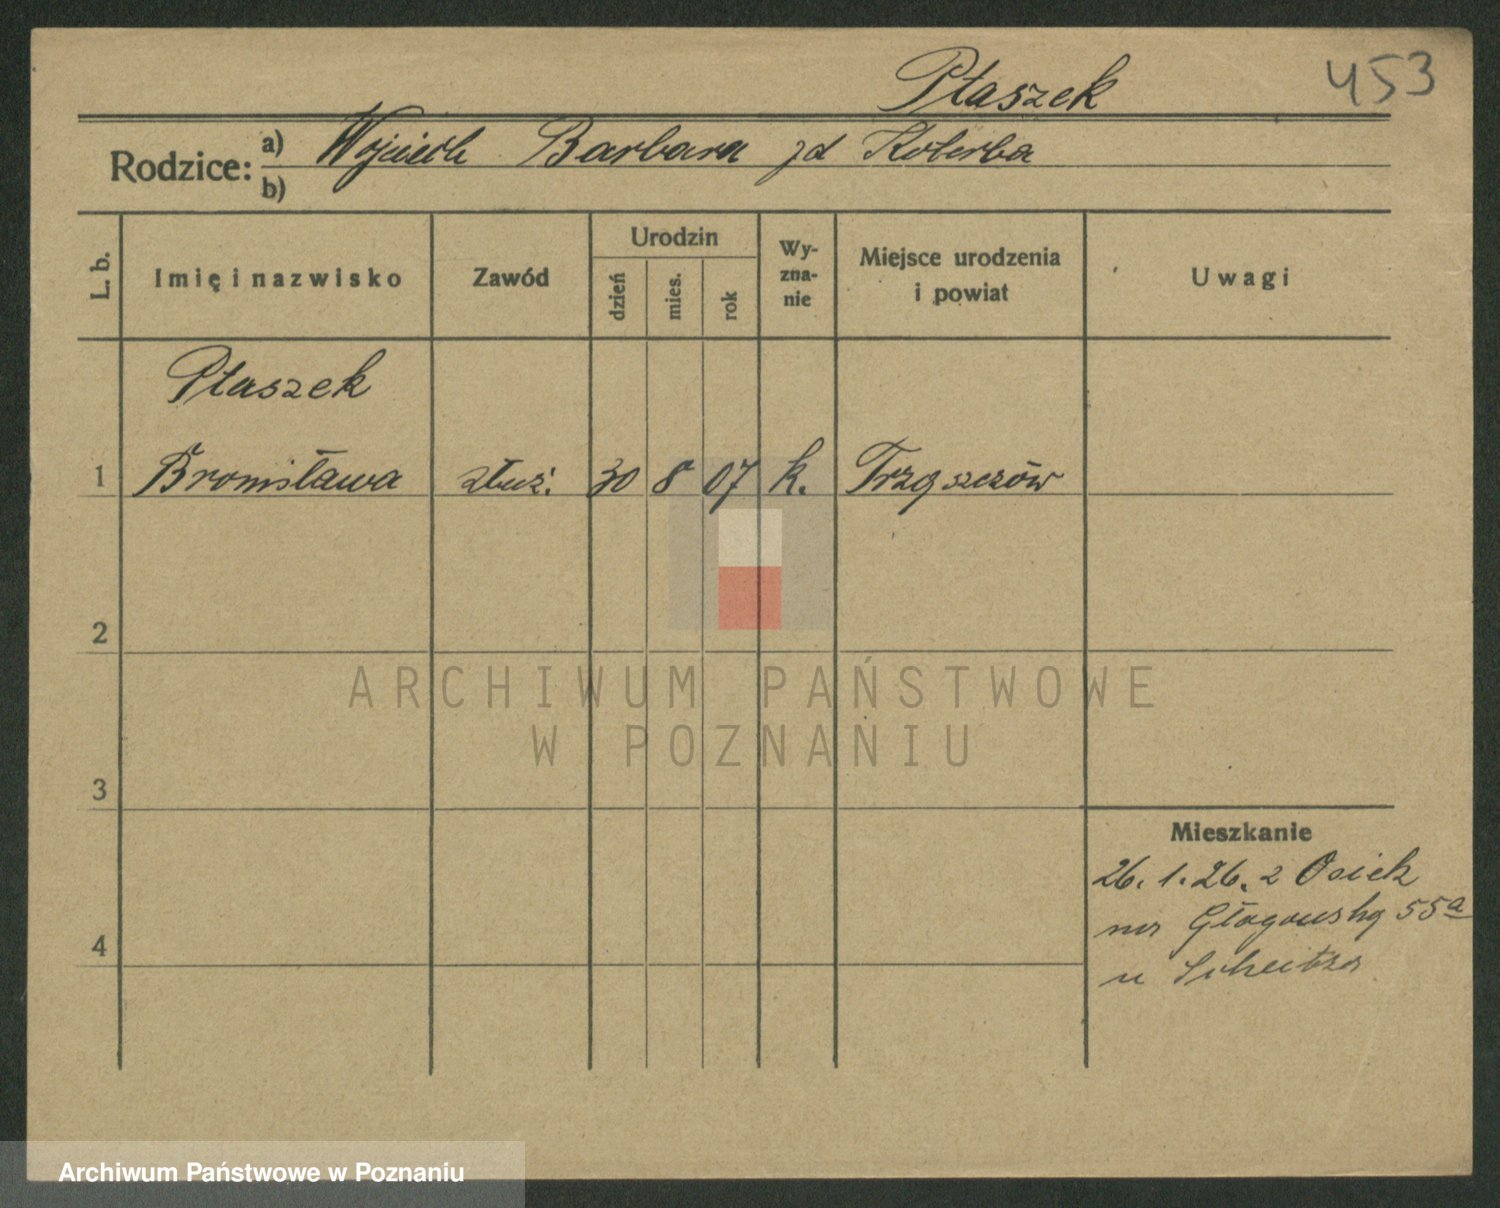 Ptaszek 453
Rodzice: a) Wojciech Barbara zd Koterba
b)
L. b.
Imię i nazwisko
Zawód
Urodzin
dzień
mies.
rok
Wy-
zna-
nie
Miejsce urodzenia
i powiat
Uwagi
Ptaszek
1 Bronisława służ. 30 8 07 k.
2
3
4
Mieszkanie
26. 1. 26. z Osiek
na Głogowską 55a
u
ARCHIWUM PAŃSTWOWE
W POZNANIU
Archiwum Państwowe w Poznaniu